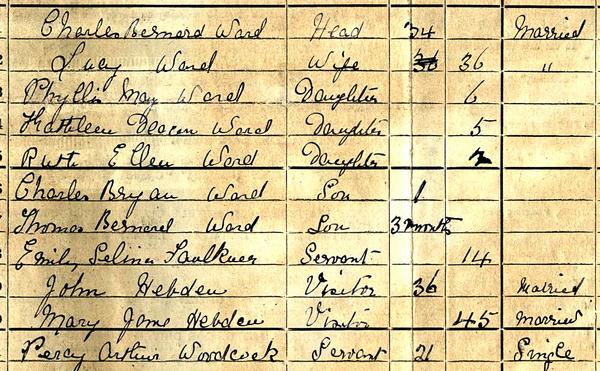 Charles Bernard Ward Head 34 Married
Lucy Ward Wife 36 36 "
Phyllis May Ward Daughter 6
Kathleen Deacon Ward Daughter 5
Ruth Ellen Ward Daughter
Charles Bryan Ward Son 1
Thomas Bernard Ward Son 3 months
Emily Selina Faulkner Servant 14
John Hebden Visitor 36 Married
Mary Jane Hebden Visitor 45 Married
Percy Arthur Woodcock Servant 21 Single